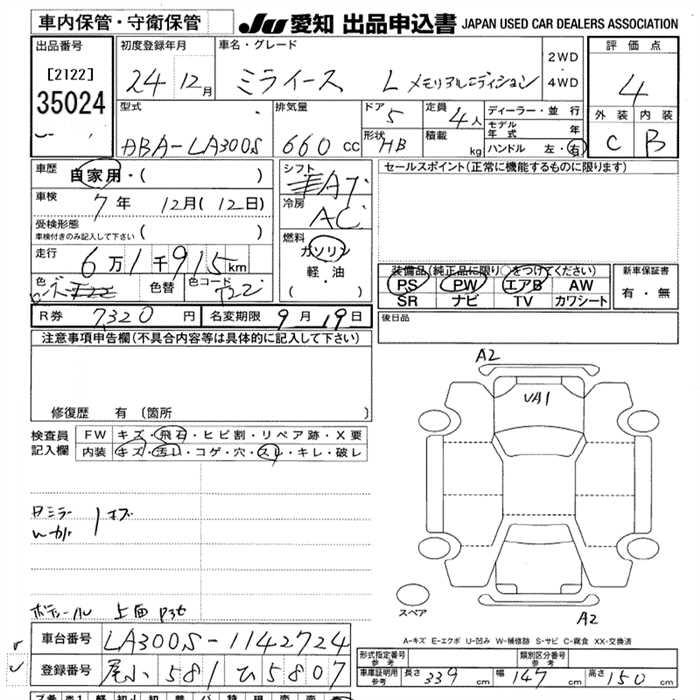 車内保管・守衛保管
JU 愛知 出品申込書 JAPAN USED CAR DEALERS ASSOCIATION
出品番号
[2122]
35024
初度登録年月
24 12月
車名・グレード
ミライース L メモリアルエディション
2WD
4WD
評価点
4
外装 内装
C B
型式
ABA-LA300S
排気量
660 cc
ドア
5
形状
HB
定員
4人
積載
kg
ディーラー・並行
モデル年式 年
ハンドル 左・右
車歴
自家用・( )
車検
7年 12月(12日)
受検形態
車検付きのみ記入して下さい ( )
走行
6万1千915km
色
色替
色コード
T22
シフト
AT
冷房
AC
燃料
ガソリン
軽油
( ・ )
セールスポイント(正常に機能するものに限ります)
装備品(純正品に限り○をつけてください)
PS PW エアB AW
SR ナビ TV カワシート
新車保証書
有・無
R券 7320円
名変期限 9月19日
後日品
注意事項申告欄(不具合内容等は具体的に記入して下さい)
修復歴 有(箇所
検査員記入欄
FW キズ・飛石・ヒビ割・リペア跡・X要
内装 キズ・汚レ・コゲ・穴・スレ・キレ・破レ
A2
UA1
A2
スペア
A-キズ E-エクボ U-凹み W-補修跡 S-サビ C-腐食 XX-交換済
車台番号 LA300S-1142724
登録番号 尾小 581 ひ 5807
形式指定番号 参考
類別区分番号 参考
車庫証明用 参考
長さ 339 cm
幅 147 cm
高さ 150 cm